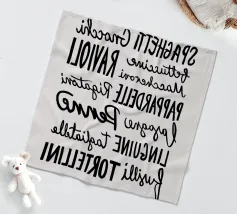 SPAGHETTI Gnocchi
fettuccine RAVIOLI
Maccheroni
PAPPARDELLE Rigatoni
lasagne Penne
LINGUINE Tagliatelle
fusilli TORTELLINI